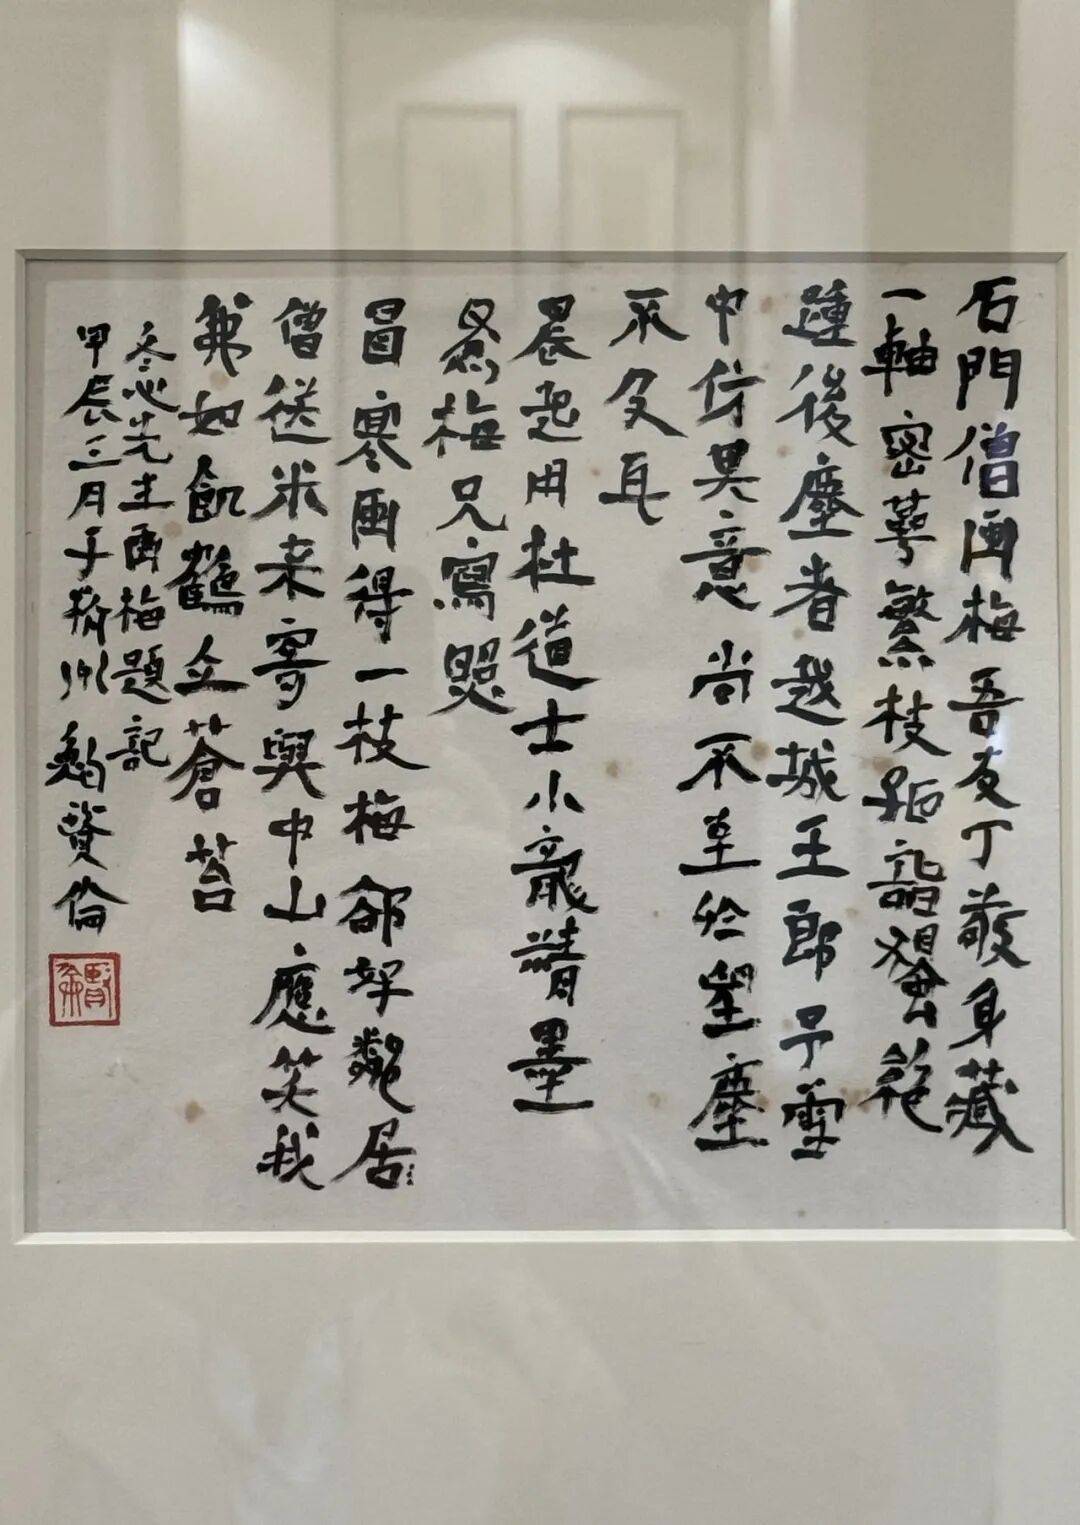 石門僧画梅吾友丁敬身藏
一軸密萼繁枝孤詣獨絶
踵後塵者越城王郎予雪
中仿其意尚不至於望塵
不及耳
晨起用杜道士小龍精墨
為梅兄寫照
冒寒画得一枝梅卻好鄰居
僧送米来寄與中山應笑我
如飢鶴立蒼苔
冬心先生画梅題記
甲辰三月于州資倫